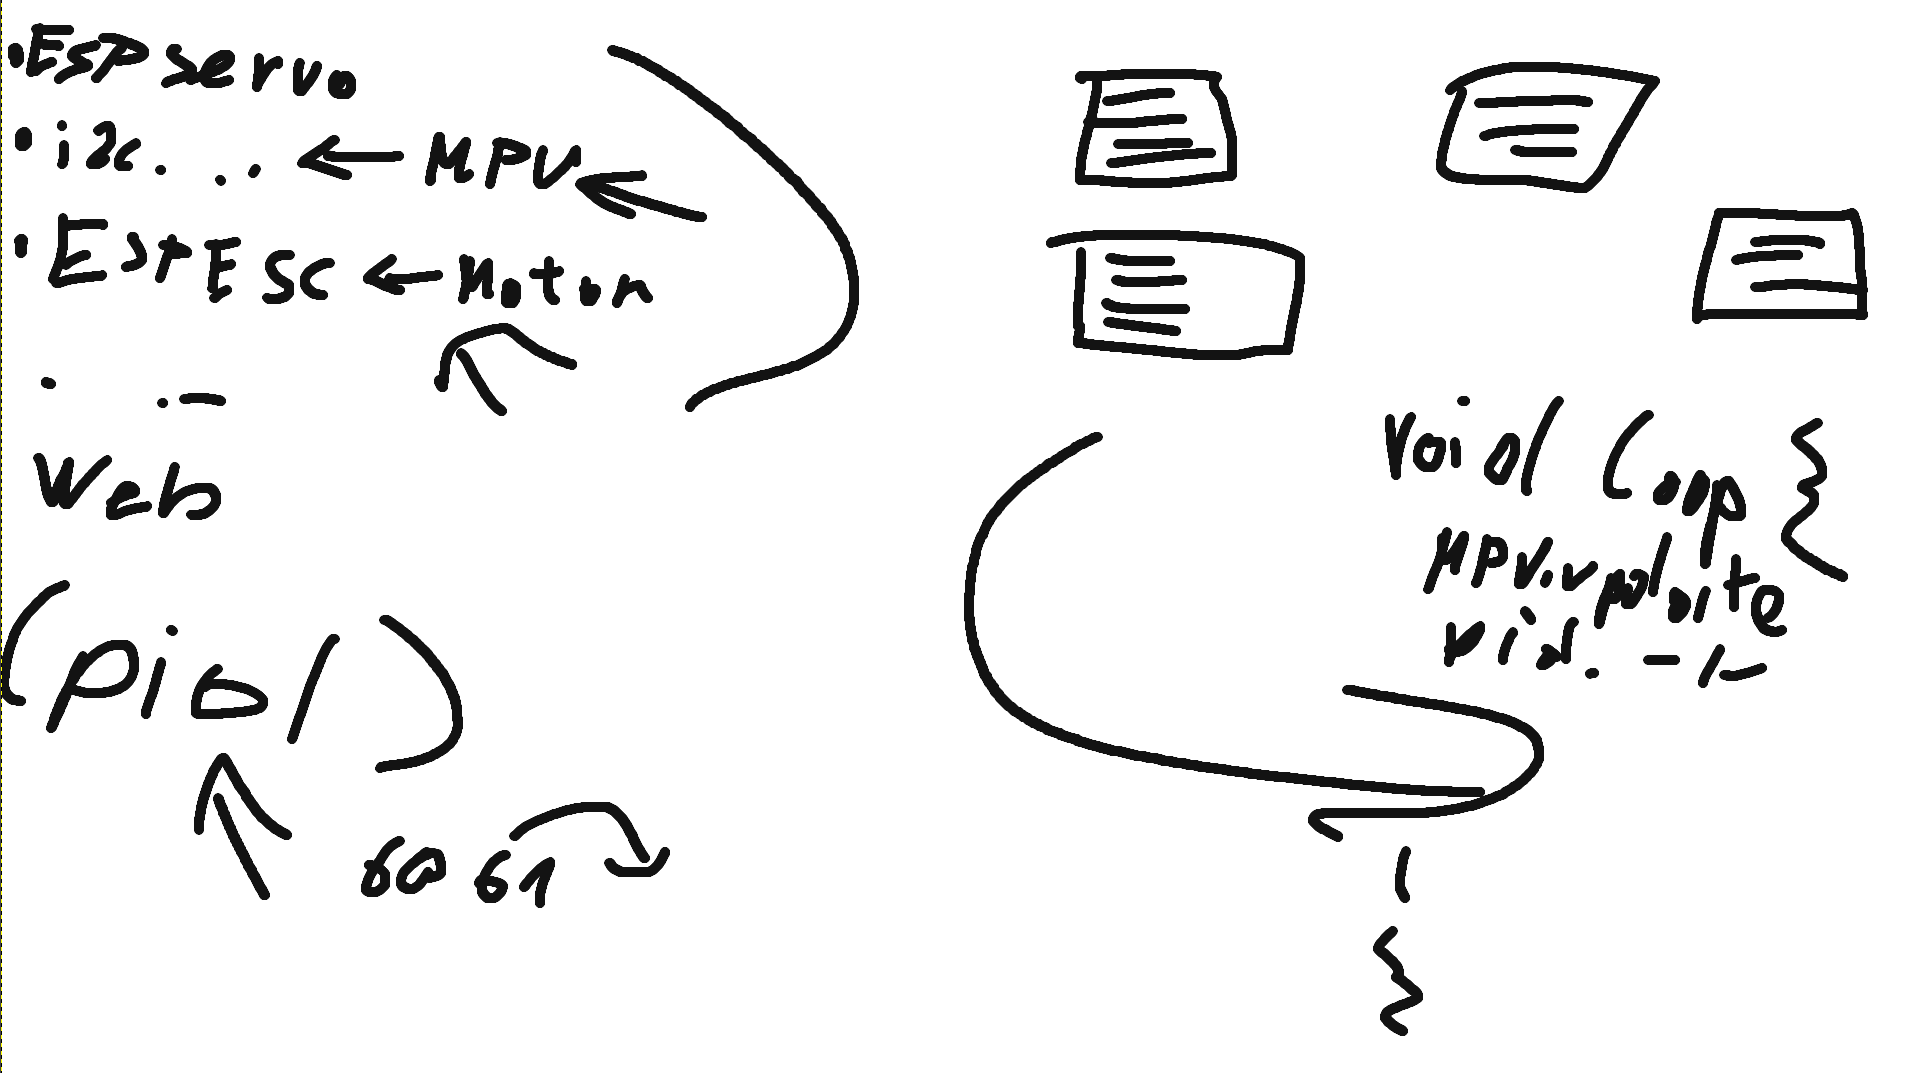 • ESP servo
• i2c... ← MPU ←
• ESP ESC ← Motor
. . –
Web
(pid)
60 61
void loop {
MPU.update
pid. -/-
}